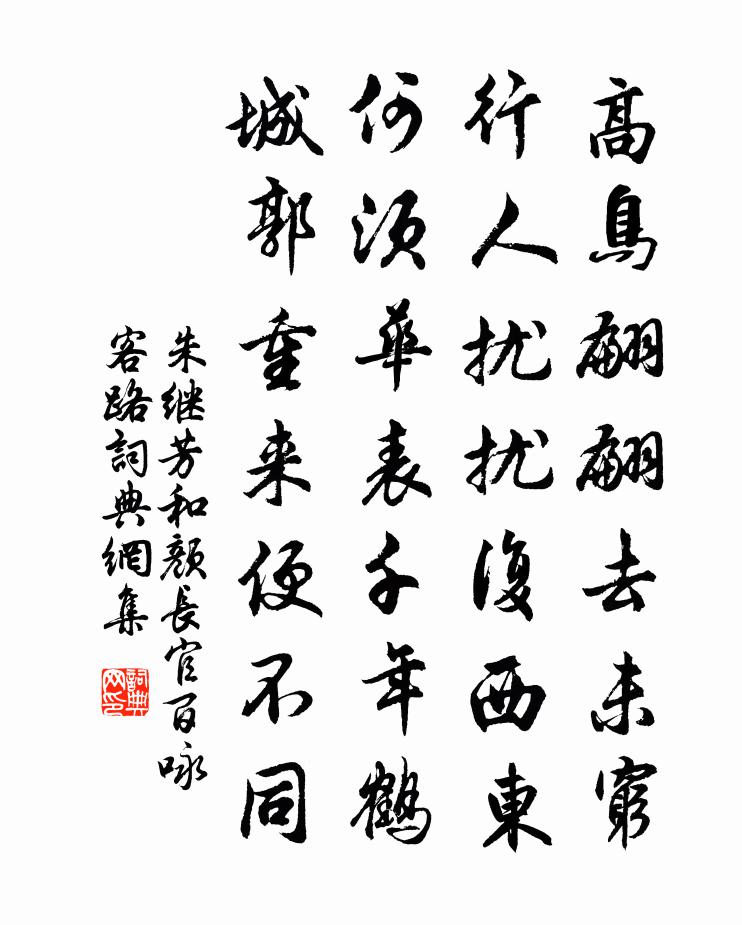 高鳥翩翩去未窮
行人扰扰復西東
何須華表千年鶴
城郭重来便不同
朱继芳和顏長官百咏
客路詞典網集
詞典网印